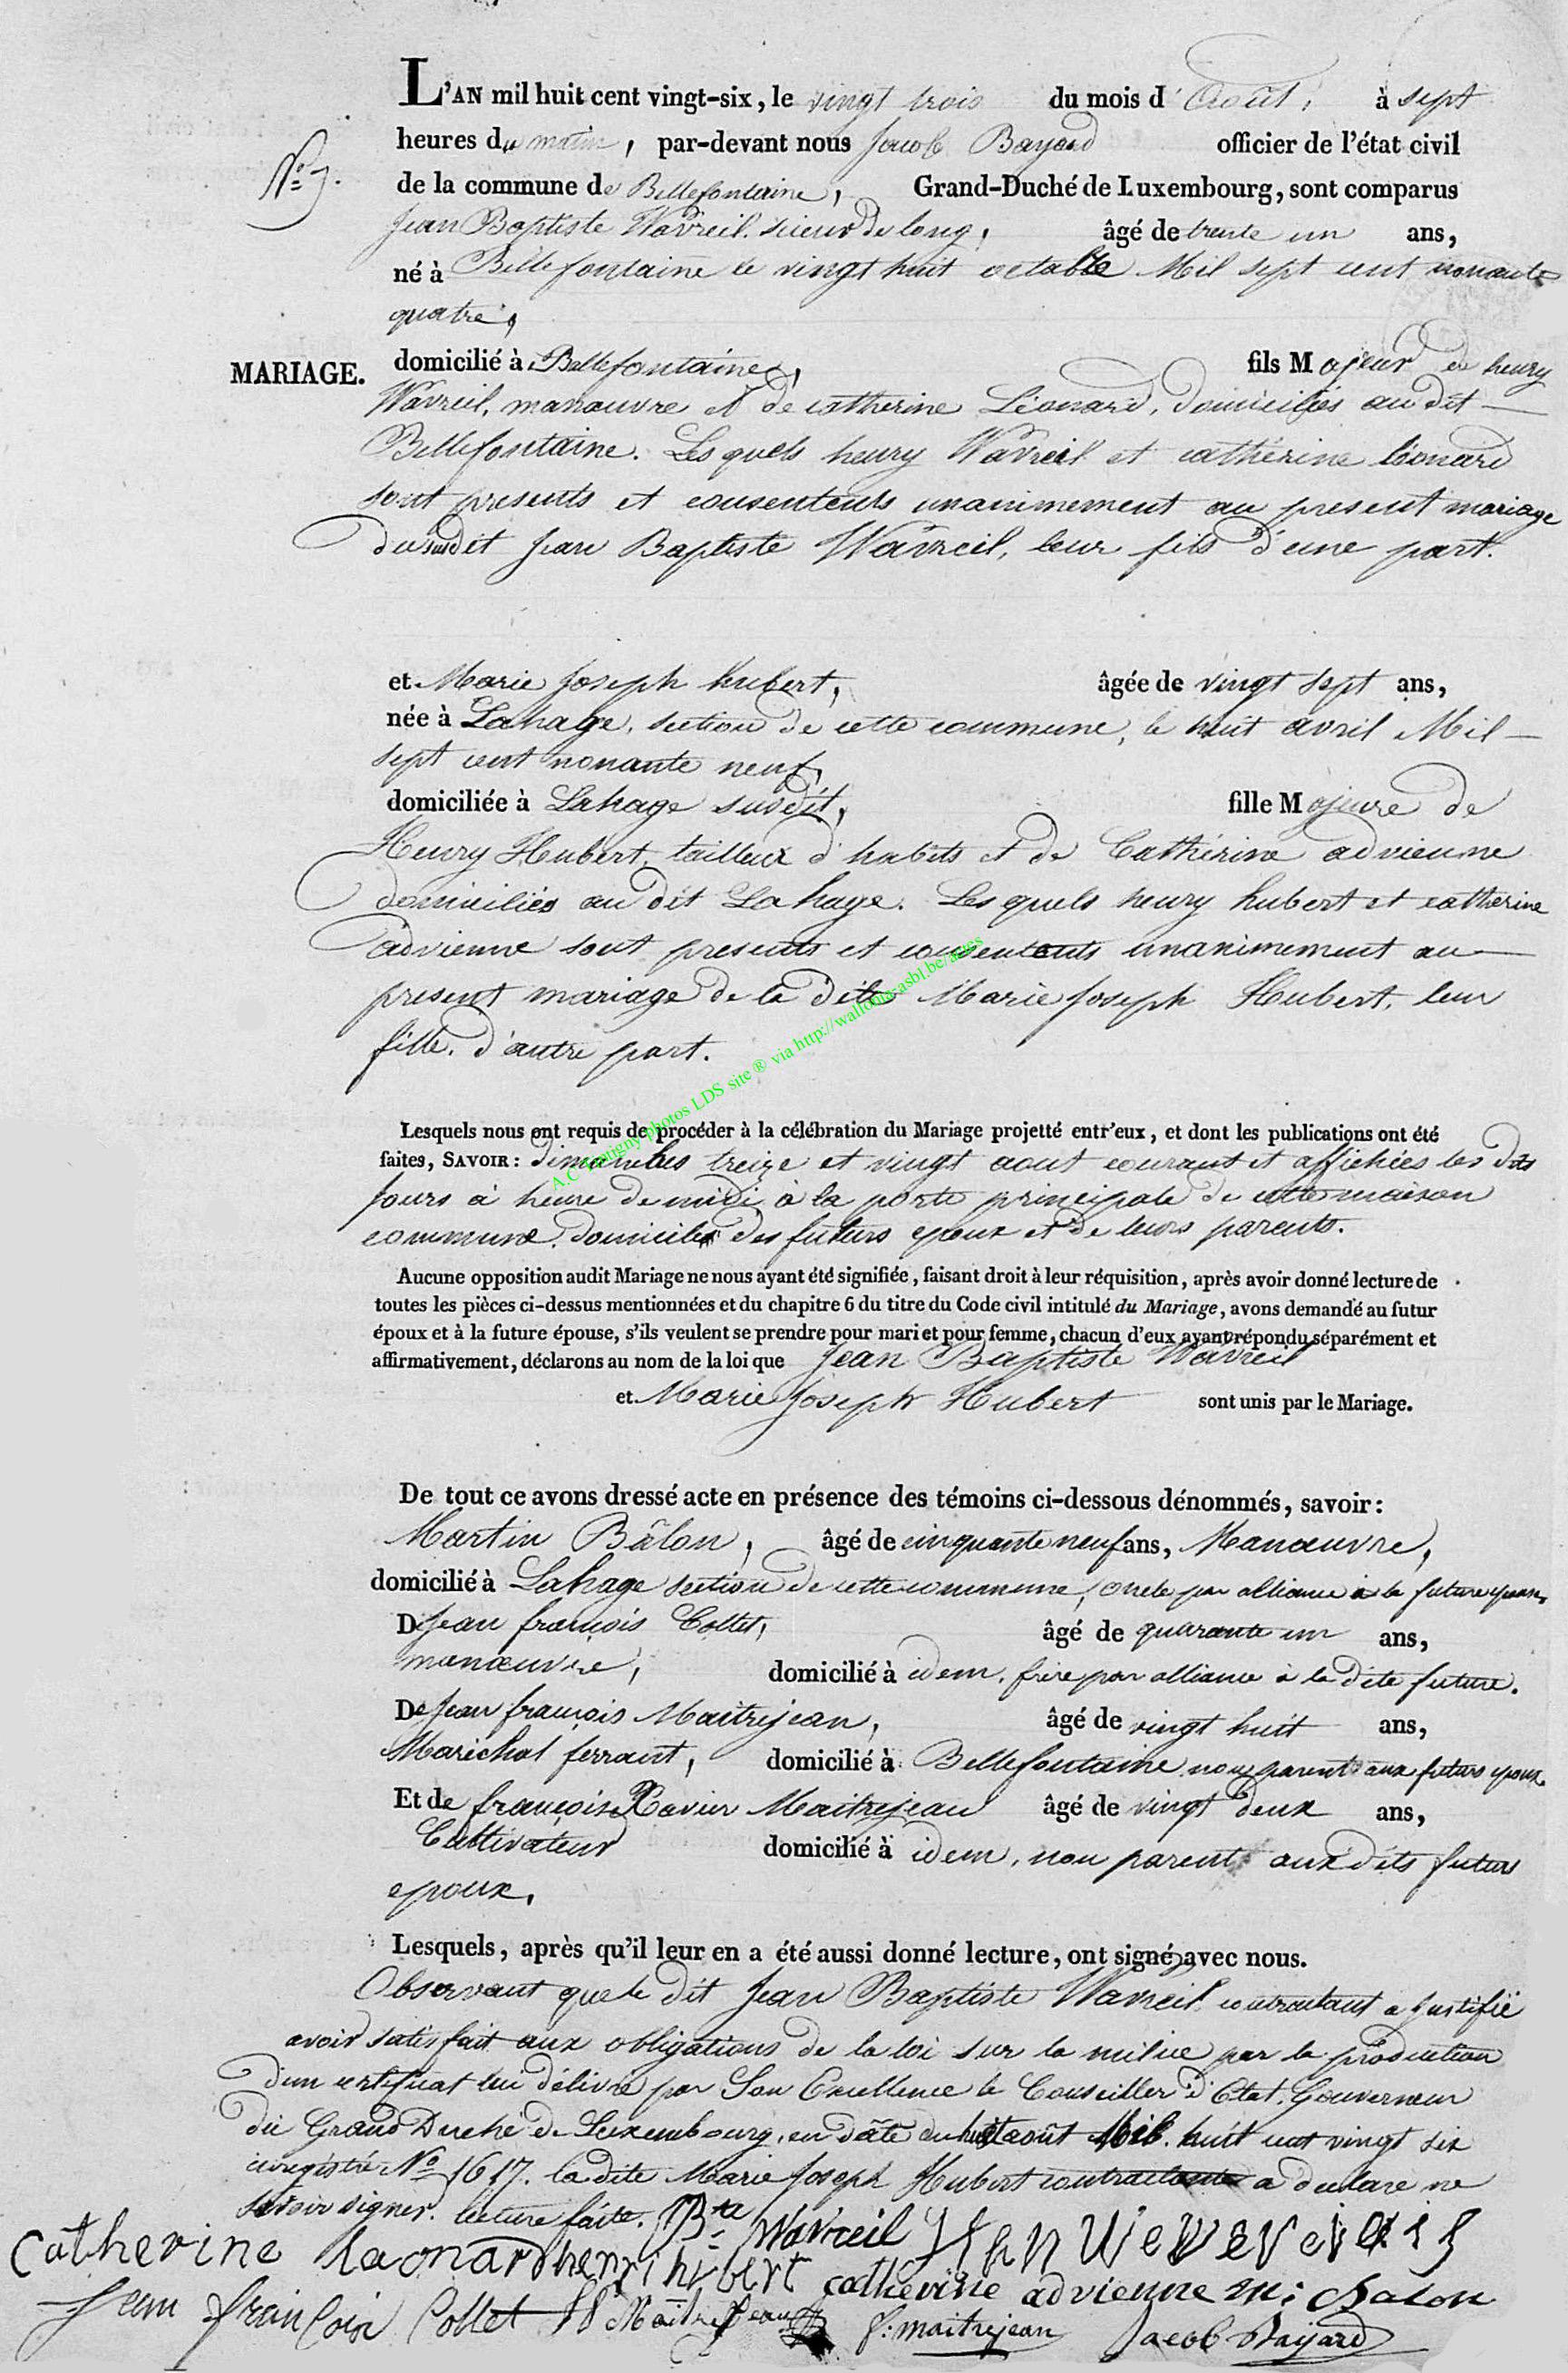 L'AN mil huit cent vingt-six, le vingt trois du mois d'Août, à sept
heures du matin, par-devant nous Jacob Bayard officier de l'état civil
N° 7.
de la commune de Bellefontaine, Grand-Duché de Luxembourg, sont comparus
Jean Baptiste Wavreil, scieur de long, âgé de trente un ans,
né à Bellefontaine le vingt huit octobre Mil sept cent nonante
quatre,
MARIAGE.
domicilié à Bellefontaine, fils Majeur de henry
Wavreil, manœuvre et de catherine Léonard, domiciliés au dit
Bellefontaine. Les quels henry Wavreil et catherine léonard
sont presents et consentents unanimement au present mariage
du susdit Jean Baptiste Wavreil, leur fils d'une part.
et Marie Joseph hubert, âgée de vingt sept ans,
née à Lahage, section de cette commune, le huit avril Mil
sept cent nonante neuf,
domiciliée à Lahage susdit, fille Majeure de
Henry Hubert, tailleur d'habits et de Cathérine advienne
domiciliés au dit Lahage. Les quels henry hubert et catherine
advienne sont presents et consentents unanimement au
present mariage de la dite Marie Joseph Hubert, leur
fille, d'autre part.
Lesquels nous ont requis de procéder à la célébration du Mariage projetté entr'eux, et dont les publications ont été
faites, SAVOIR : dimanches treize et vingt aout courant et affichées les dits
Jours à heure de midi à la porte principale de cette maison
commune, domiciles des futurs epoux et de leurs parents.
Aucune opposition audit Mariage ne nous ayant été signifiée, faisant droit à leur réquisition, après avoir donné lecture de
toutes les pièces ci-dessus mentionnées et du chapitre 6 du titre du Code civil intitulé du Mariage, avons demandé au futur
époux et à la future épouse, s'ils veulent se prendre pour mari et pour femme, chacun d'eux ayant répondu séparément et
affirmativement, déclarons au nom de la loi que Jean Baptiste Wavreil
et Marie Joseph Hubert sont unis par le Mariage.
De tout ce avons dressé acte en présence des témoins ci-dessous dénommés, savoir :
Martin Bâlon, âgé de cinquante neuf ans, Manœuvre,
domicilié à Lahage section de cette commune, oncle par alliance à la future epouse,
De Jean françois Collet, âgé de quarante un ans,
manœuvre, domicilié à idem, frère par alliance à la dite future.
De Jean françois Maitrejean, âgé de vingt huit ans,
Maréchal ferrant, domicilié à Bellefontaine non parent aux futurs epoux.
Et de françois Xavier Maitrejean âgé de vingt deux ans,
Cultivateur domicilié à idem, non parent aux dits futurs
epoux.
Lesquels, après qu'il leur en a été aussi donné lecture, ont signé avec nous.
Observant que le dit Jean Baptiste Wavreil contractant a justifié
avoir satisfait aux obligations de la loi sur la milice par la production
d'un certificat lui délivré par Son Excellence le Conseiller d'Etat, Gouverneur
du Grand Duché de Luxembourg, en date du huit août Mil huit cent vingt six
enregistré N° 1617. la dite Marie Joseph Hubert contractante a declare ne
savoir signer. lecture faite. J Bte Wavreil
catherine laonard henri hubert catherine advienne M: Balon
Jean françois Collet Maitrejean f: maitrejean Jacob Bayard
A.C. Gougny photos LDS site ® via http://wallonia-asbl.be/actes